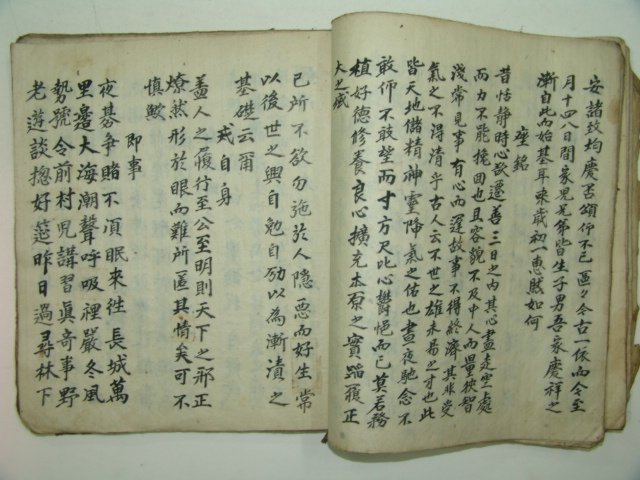 安諸致均慶否頌仰不已區々今古一依而今至
月十四八日間家兄兄弟皆生子男吾家慶祥之
漸自此而始基耳來歲初一惠然如何
座銘
昔恬靜時心欲遷善三日之內其心盡走空處
而力不能挽回也且容貌不及中人而量狹智
淺常見事有心而遲故事不得終濟其非受
氣之不得淸乎古人云不世之雄未易之才也此
皆天地儲精神靈降氣之佑也晝夜馳念不
敢仰不敢望而寸方尺比心鬱悒而已莫若務
植好德修養良心擴充本原之實蹈履正
大之域
己所不欲勿施於人隱惡而好生常
以後世之興自勉自励以為漸漬之
基礎云爾
戒自身
盖人之履行至公至明則天下之邪正
燎然形於眼而難所匿其情矣可不
慎歟
即事
夜碁爭賭不須眠來徃長城萬
里邊大海潮聲呼吸裡嚴冬風
勢號令前村兒講習眞奇事野
老遊談摠好筵昨日過尋林下